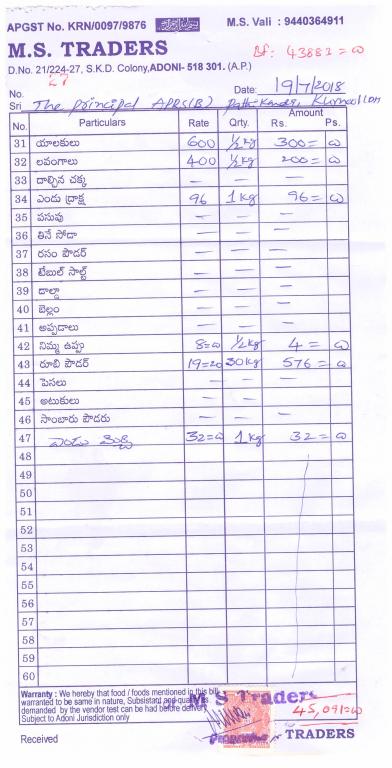 APGST No. KRN/0097/9876 M.S. Vali : 9440364911
M.S. TRADERS
Bf: 43883=00
D.No. 21/224-27, S.K.D. Colony, ADONI- 518 301. (A.P.)
27
No. Date: 19/7/2018
Sri The principal APRS(B) Kurnool Dn
No. Particulars Rate Qrty. Amount Rs. Ps.
31 యాలకులు 600 ½ kg 300= 00
32 లవంగాలు 400 ½ kg 200= 00
33 దాల్చిన చక్కు — — —
34 ఎండు ద్రాక్ష 96 1 kg 96= 00
35 పసుపు — — —
36 తినే సోడా — — —
37 రసం పౌడర్ — — —
38 టేబుల్ సాల్ట్ — — —
39 దాల్డా — — —
40 బెల్లం — — —
41 అప్పడాలు — — —
42 నిమ్మ ఉప్పు 8=00 ½ kg 4= 00
43 రూబి పౌడర్ 19=20 30 kg 576= 00
44 పెసలు — — —
45 అటుకులు — —
46 సాంబారు పౌడరు — — —
47 ఎండు మిర్చి 32=00 1 kg 32= 00
48
49
50
51
52
53
54
55
56
57
58
59
60
Warranty : We hereby that food / foods mentioned in this bill
warranted to be same in nature, Subsistant and qualit as
demanded by the vendor test can be had before delivery
Subject to Adoni Jurisdiction only
M.S Traders
45,091=00
Received TRADERS